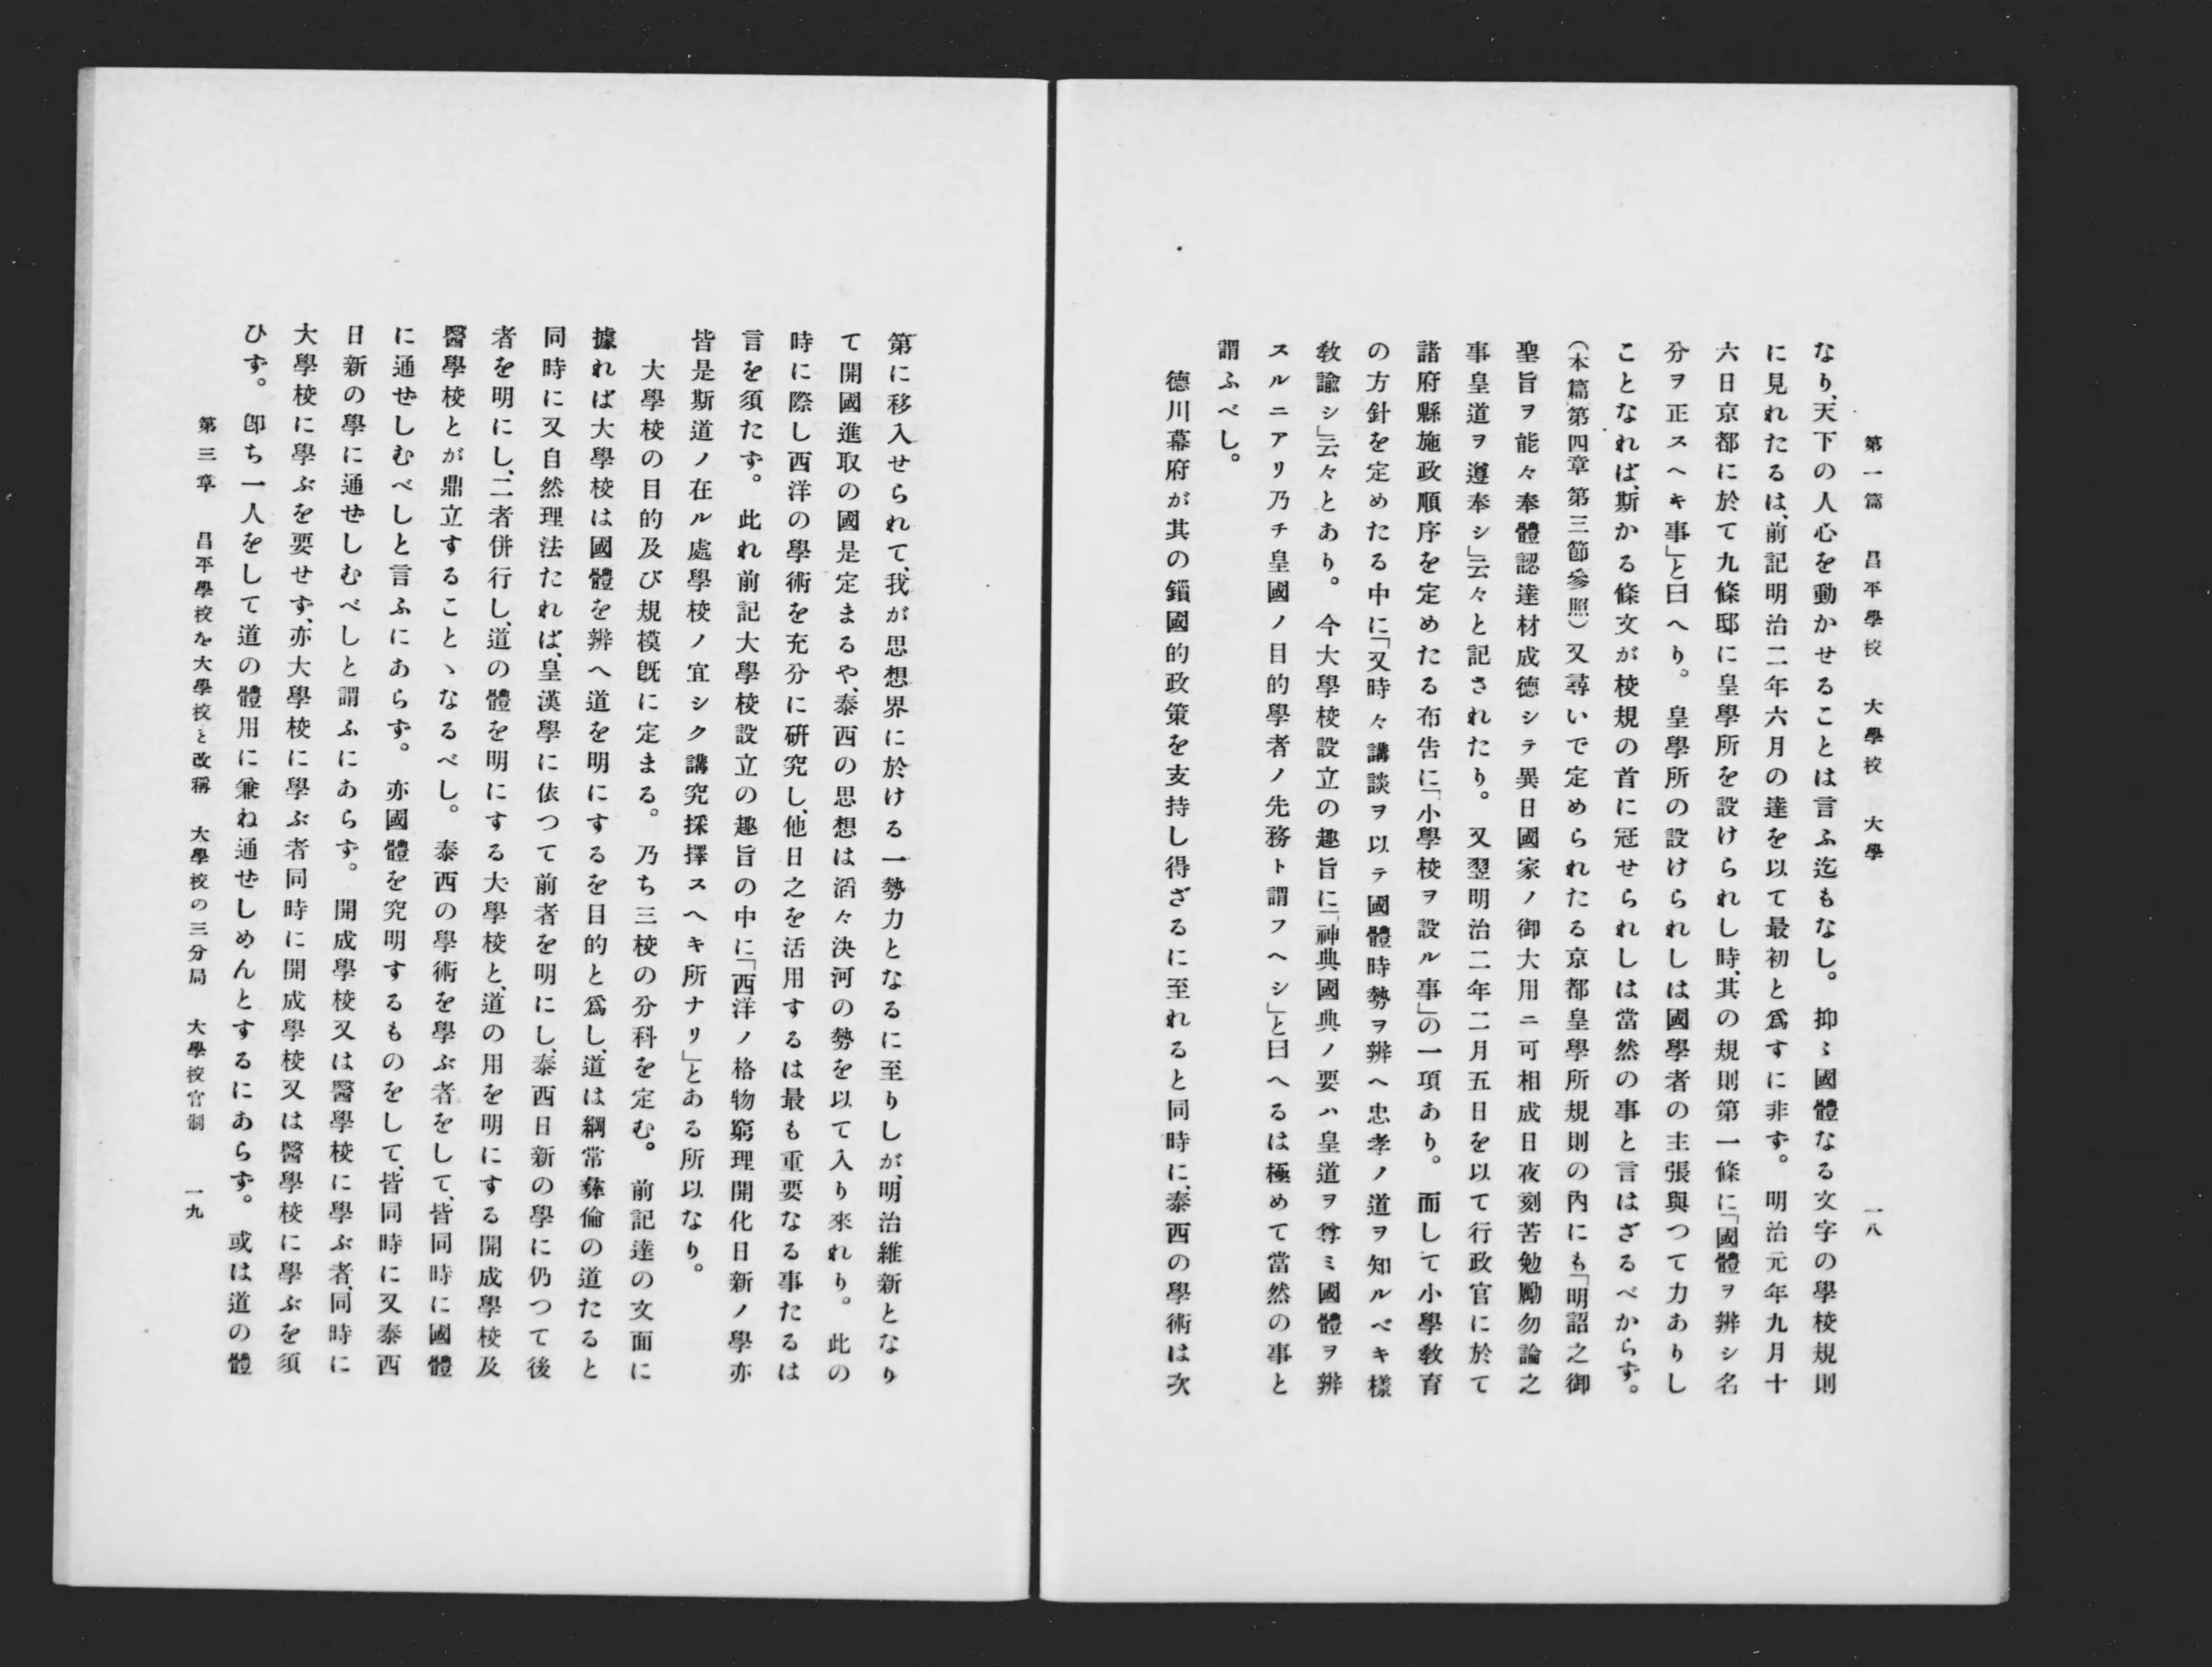 第一篇　昌平學校　大學校　大學　一八
なり、天下の人心を動かせることは言ふ迄もなし。抑〻國體なる文字の學校規則
に見れたるは、前記明治二年六月の達を以て最初と爲すに非ず。明治元年九月十
六日京都に於て九條邸に皇學所を設けられし時、其の規則第一條に「國體ヲ辨シ名
分ヲ正スヘキ事」と曰へり。皇學所の設けられしは國學者の主張與つて力ありし
ことなれば、斯かる條文が校規の首に冠せられしは當然の事と言はざるべからず。
（本篇第四章第三節參照）又尋いで定められたる京都皇學所規則の内にも「明詔之御
聖旨ヲ能々奉體認達材成德シテ異日國家ノ御大用ニ可相成日夜刻苦勉勵勿論之
事皇道ヲ遵奉シ」云々と記されたり。又翌明治二年二月五日を以て行政官に於て
諸府縣施政順序を定めたる布告に、「小學校ヲ設ル事」の一項あり。而して小學敎育
の方針を定めたる中に「又時々講談ヲ以テ國體時勢ヲ辨ヘ忠孝ノ道ヲ知ルベキ樣
敎諭シ」云々とあり。今大學校設立の趣旨に、「神典國典ノ要ハ皇道ヲ尊ミ國體ヲ辨
スルニアリ乃チ皇國ノ目的學者ノ先務ト謂フヘシ」と曰へるは極めて當然の事と
謂ふべし。
德川幕府が其の鎻國的政策を支持し得ざるに至れると同時に、泰西の學術は次
第に移入せられて、我が思想界に於ける一勢力となるに至りしが、明治維新となり
て開國進取の國是定まるや、泰西の思想は滔々決河の勢を以て入り來れり。此の
時に際し西洋の學術を充分に硏究し、他日之を活用するは最も重要なる事たるは
言を須たず。此れ前記大學校設立の趣旨の中に「西洋ノ格物窮理開化日新ノ學亦
皆是斯道ノ在ル處學校ノ宜シク講究採擇スヘキ所ナリ」とある所以なり。
大學校の目的及び規模旣に定まる。乃ち三校の分科を定む。前記達の文面に
據れば大學校は國體を辨へ道を明にするを目的と爲し、道は綱常彝倫の道たると
同時に又自然理法たれば、皇漢學に依つて前者を明にし、泰西日新の學に仍つて後
者を明にし、二者併行し、道の體を明にする大學校と、道の用を明にする開成學校及
醫學校とが鼎立することゝなるべし。泰西の學術を學ぶ者をして、皆同時に國體
に通せしむべしと言ふにあらず。亦國體を究明するものをして、皆同時に又泰西
日新の學に通せしむべしと謂ふにあらず。開成學校又は醫學校に學ぶ者、同時に
大學校に學ぶを要せず、亦大學校に學ぶ者同時に開成學校又は醫學校に學ぶを須
ひず。卽ち一人をして道の體用に兼ね通せしめんとするにあらず。或は道の體
第三章　昌平學校を大學校と改稱　大學校の三分局　大學校官制　一九